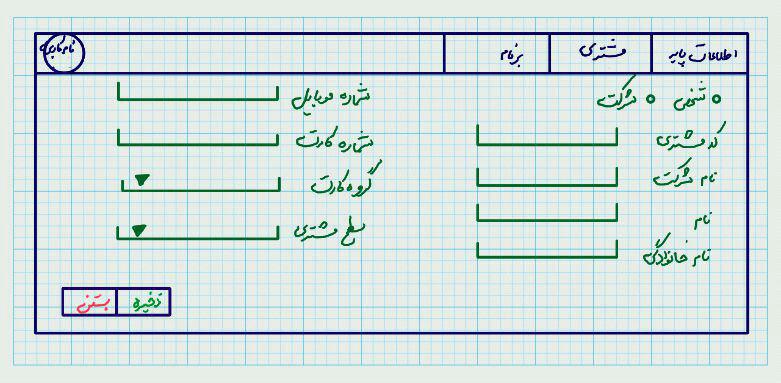 اطلاعات پایه
مشتری
برنام
نام کاربری
شخص
شرکت
کد مشتری
نام شرکت
نام
نام خانوادگی
شماره موبایل
شماره کارت
گروه کارت
سطح مشتری
ذخیره
بستن